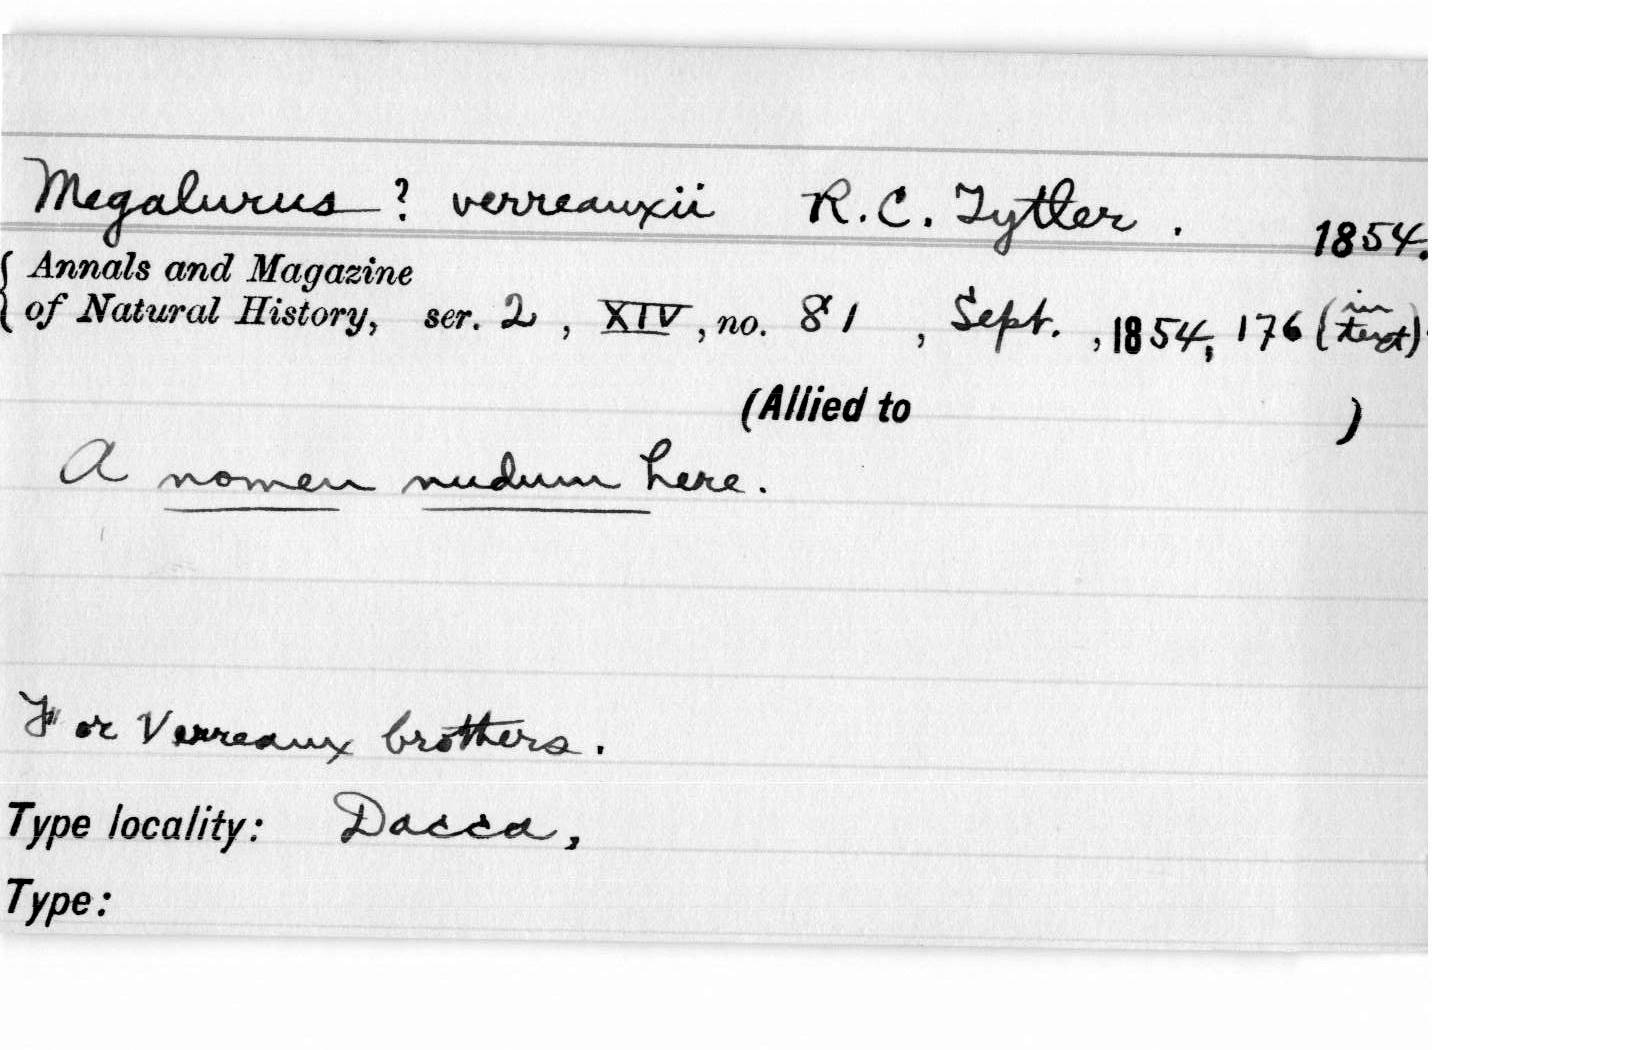 Megalurus ? verreauxii R.C. Tytler . 1854.
Annals and Magazine
of Natural History, ser. 2, XIV, no. 81, Sept., 1854, 176 (in text)
(Allied to )
A nomen nudum here.
For Verreaux brothers.
Type locality: Dacca,
Type: